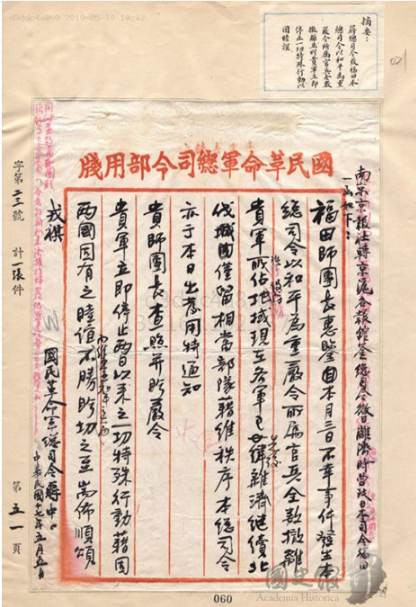 摘要：
蔣總司令致福田日本
總司令以和平為重
嚴令所屬官兵全數
撤離並盼貴軍立即
停止一切特殊行動以
固睦誼
國民革命軍總司令部用牋
南京京報社轉京滬各報館鑒總司令微日離濟時曾致日本司令福田
一函如下：
福田師團長惠鑒自本月三日不幸事件發生本
總司令以和平為重嚴令所屬官兵全數撤離
貴軍所佔地域現在各軍已先後離濟繼續北
伐城內僅留相當部隊藉維秩序本總司令
亦于本日出發用特通知
貴師團長查照並盼嚴令
貴軍立即停止兩日以來之一切特殊行動藉固
兩國固有之睦誼不勝盼切之至耑佈順頌
戎祺
國民革命軍總司令蔣中
中華民國十七年五月五日
字第二三號 計一張件 第五一頁
060
國史館
Academia Historica